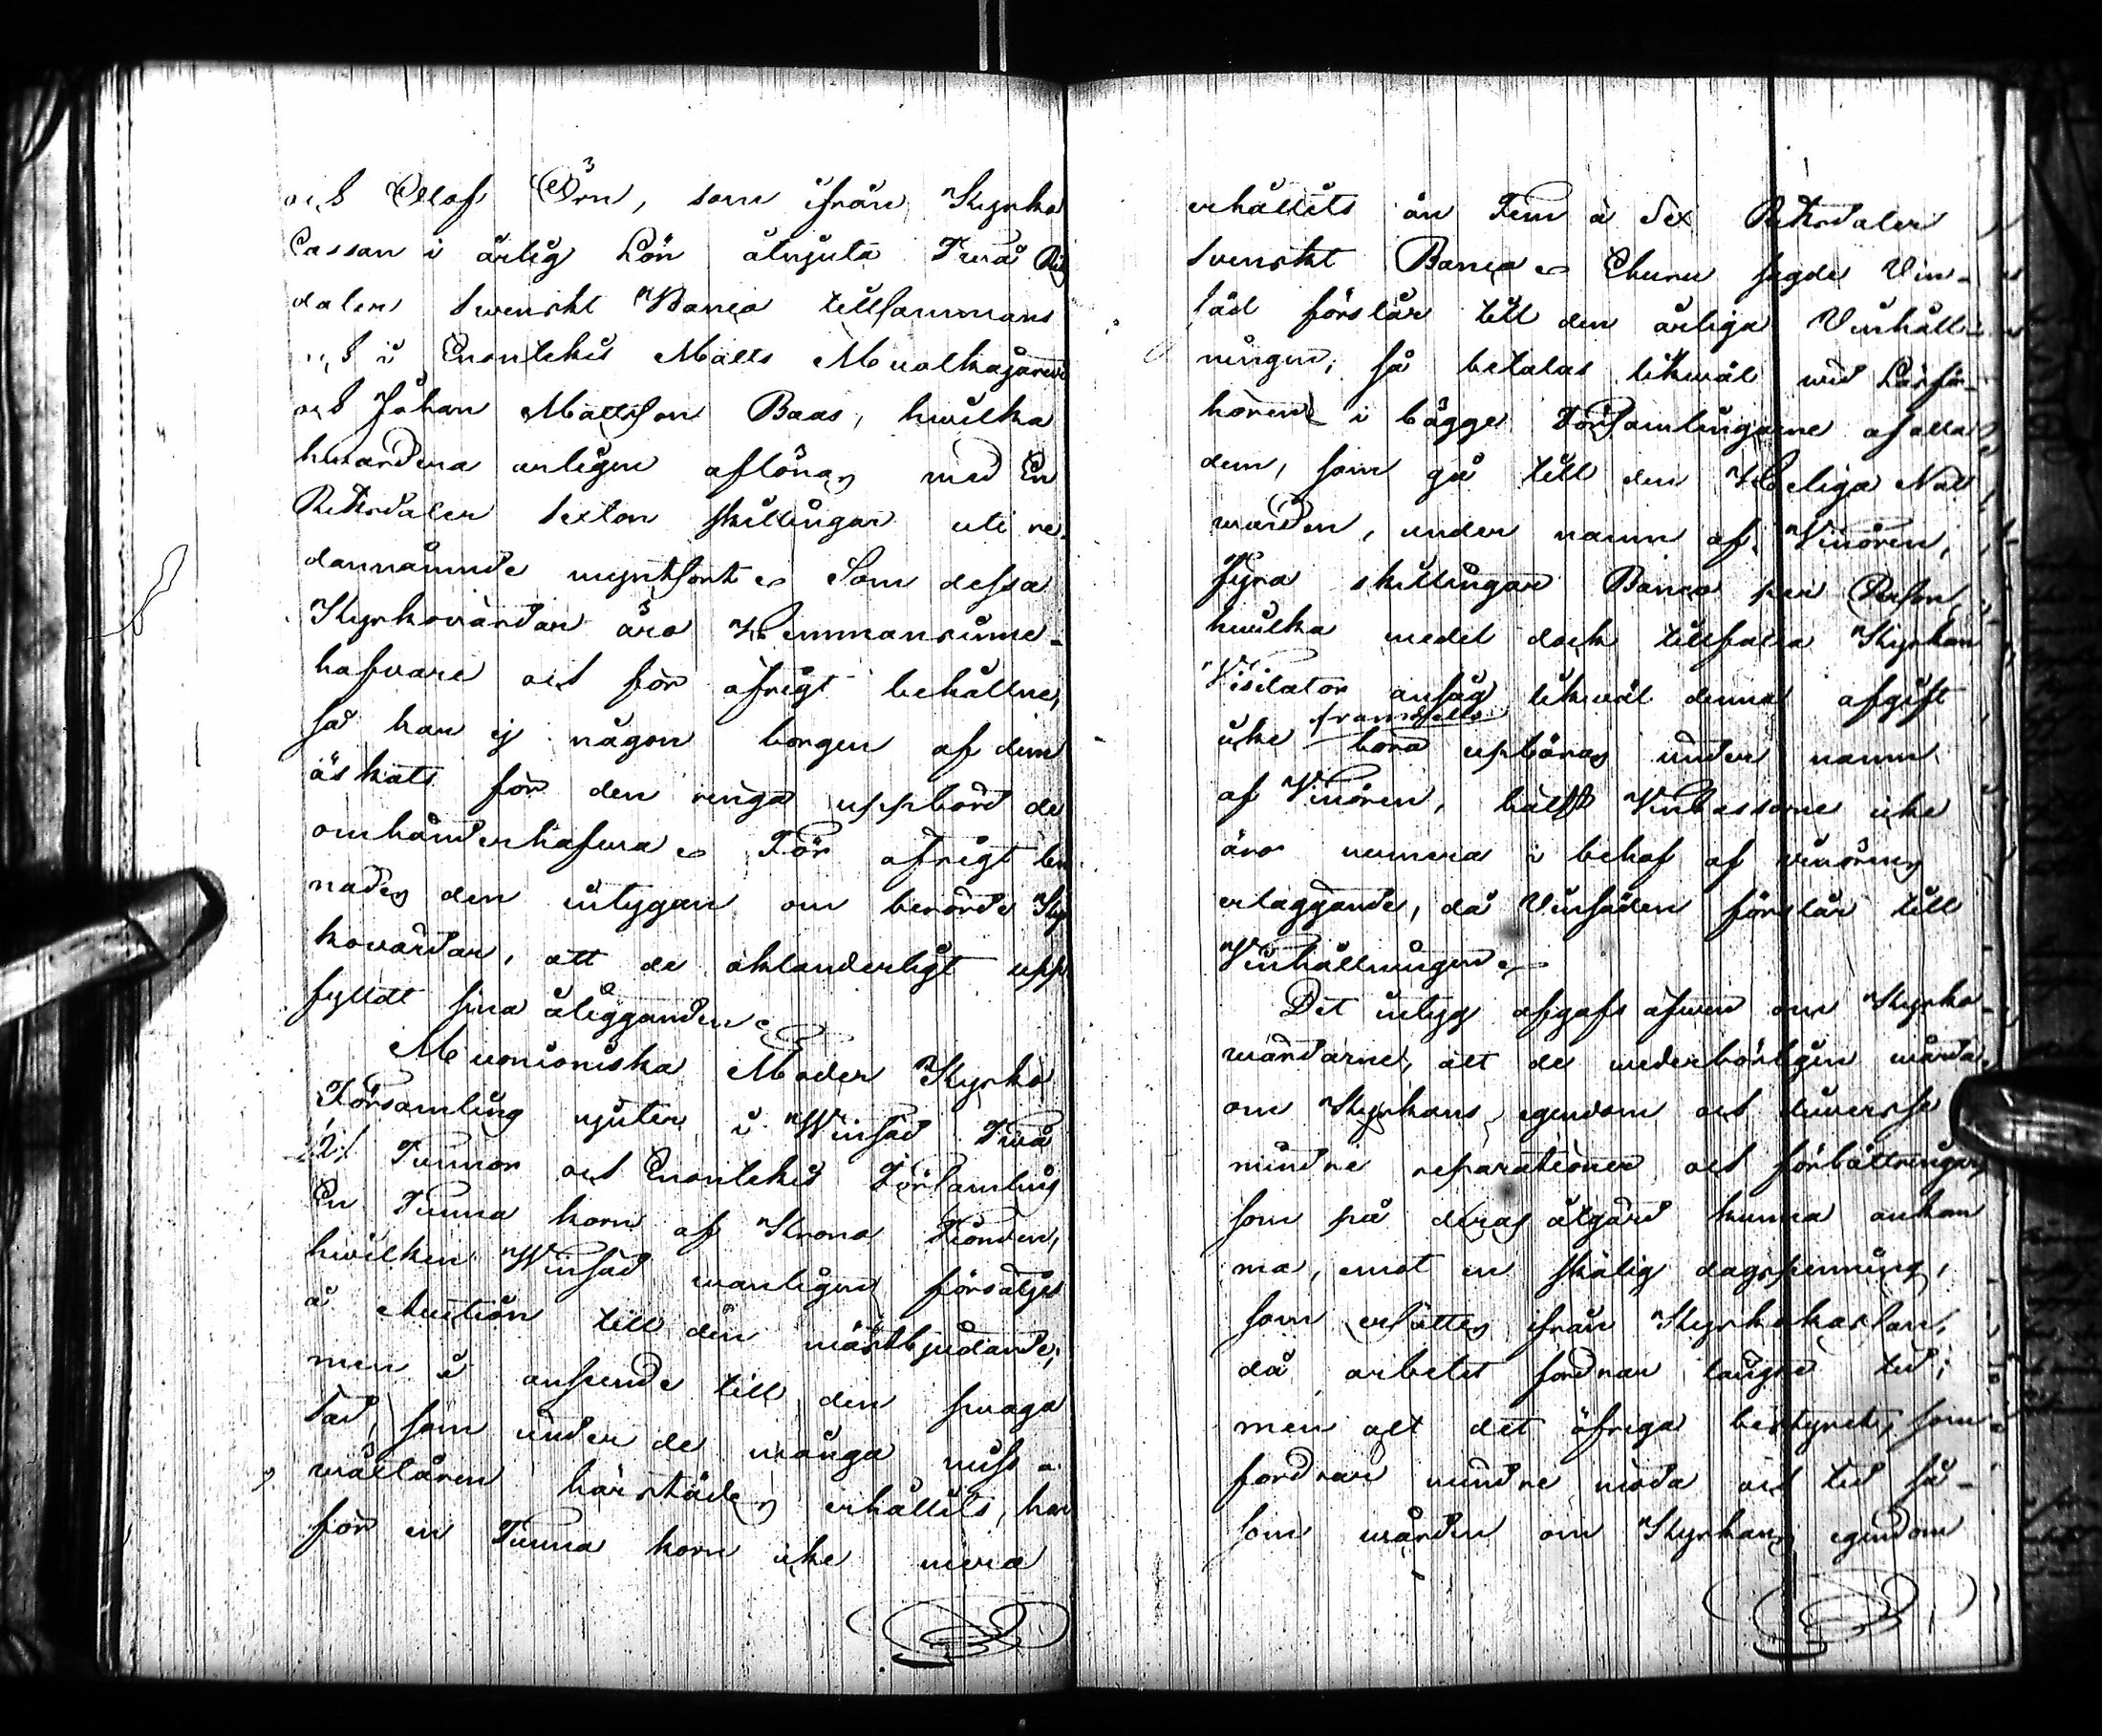 och Olof Örn, som ifrån Kyrko
Cassan i årlig Lön åtnjuta Twå Rik
daler Swenskt Banco tillsammans
och i Enontekis Matts Muotkajärwi
och Johan Mattsson Baas, hwilka
hwardera årligen aflönas med En
Riksdaler Sexton skillingar uti re-
dannämnde myntsort. Som dessa
Kyrkovärdar äro Hemmansinne-
hafvare och för öfrigt behållne,
så har ej någon borgen af dem
äskats för den ringa uppbörd de
omhänderhafwa. För öfrigt lem
nades den intygan om berörde Kyr
kovärdar, att de oklanderligt upp
fylldt sina åligganden.
Muonioniska Moder Kyrko
Församling njuter i Winsäd Twå
/2/ Tunnor och Enontekis Församling
En Tunna korn af Krono Tionden,
hwilken Winsäd wanligen försäljes
å Auction till den mästbjudande;
men i anseende till den swaga
Säd, som under de många miss-
wäxtåren härstädes erhållits, har
för en Tunna korn icke mera
erhållits än Fem à Sex Riksdaler
Svenskt Banco. Ehuru sagde Vin-
säd förslår till den årliga Vinhåll-
ningen, så betalas likwäl wid Läsför-
hören i bägge Församlingarne af alla
dem, som gå till den Heliga Natt
warden, under namn af Vinören,
fyra skillingar Banco per Person,
hwilka medel dock tillfalla Kyrkan
Visitator ansåg likwäl denna afgift
icke framdeles böra upbäras under namn
af Vinören, hälst Vincassorne icke
äro numera i behof af vinörens
erläggande, då Vinsäden förslår till
Vinhållningen.
Det intyg afgafs äfwen om Kyrko-
wärdarne, att de wederbörligen wårda
om Kyrkans egendom och diversse
mindre reparationer och förbättringar,
som på deras åtgärd kunna ankom
ma, emot en skälig dagspenning,
som ersättes ifrån Kyrkokassan,
då arbetet fordrar längre tid;
men alt det öfriga bestyret, som
fordrar mindre möda och tid så-
som wården om Kyrkans egendom